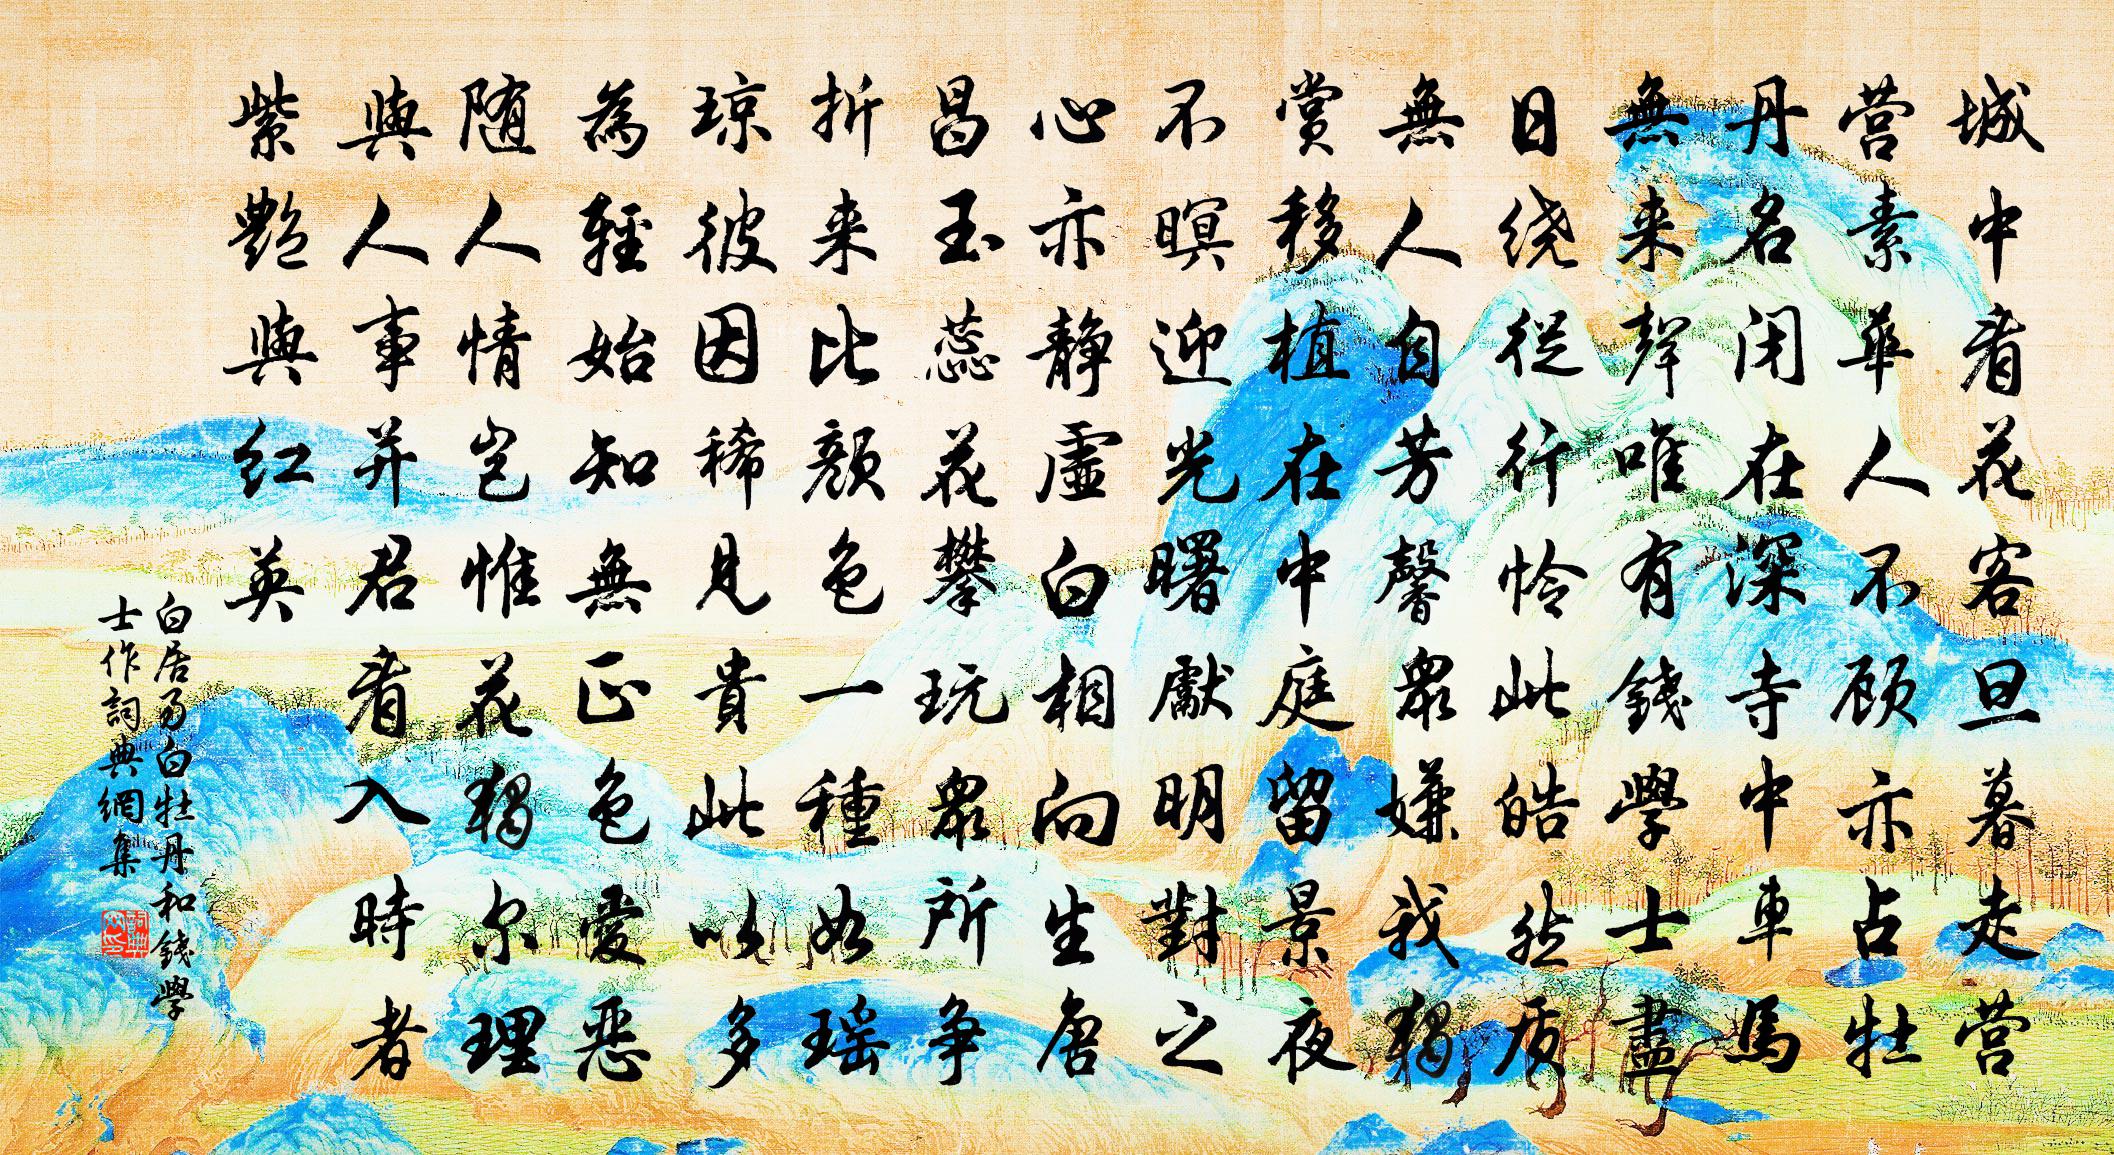 城中看花客旦暮走营
营素華人不顾亦占牡
丹名闭在深寺中車馬
無来聲唯有錢學士盡
日绕從行怜此皓然质
無人自芳馨眾嫌我獨
赏移植在中庭留景夜
不暝迎光曙獻明對之
心亦静虚白相向生唐
昌玉蕊花攀玩眾所争
折来比颜色一種如瑶
琼彼因稀見貴此以多
為輕始知無正色爱恶
随人情岂惟花獨尔理
與人事并君看入時者
紫艷與红英
白居易白牡丹和錢學
士作詞典網集